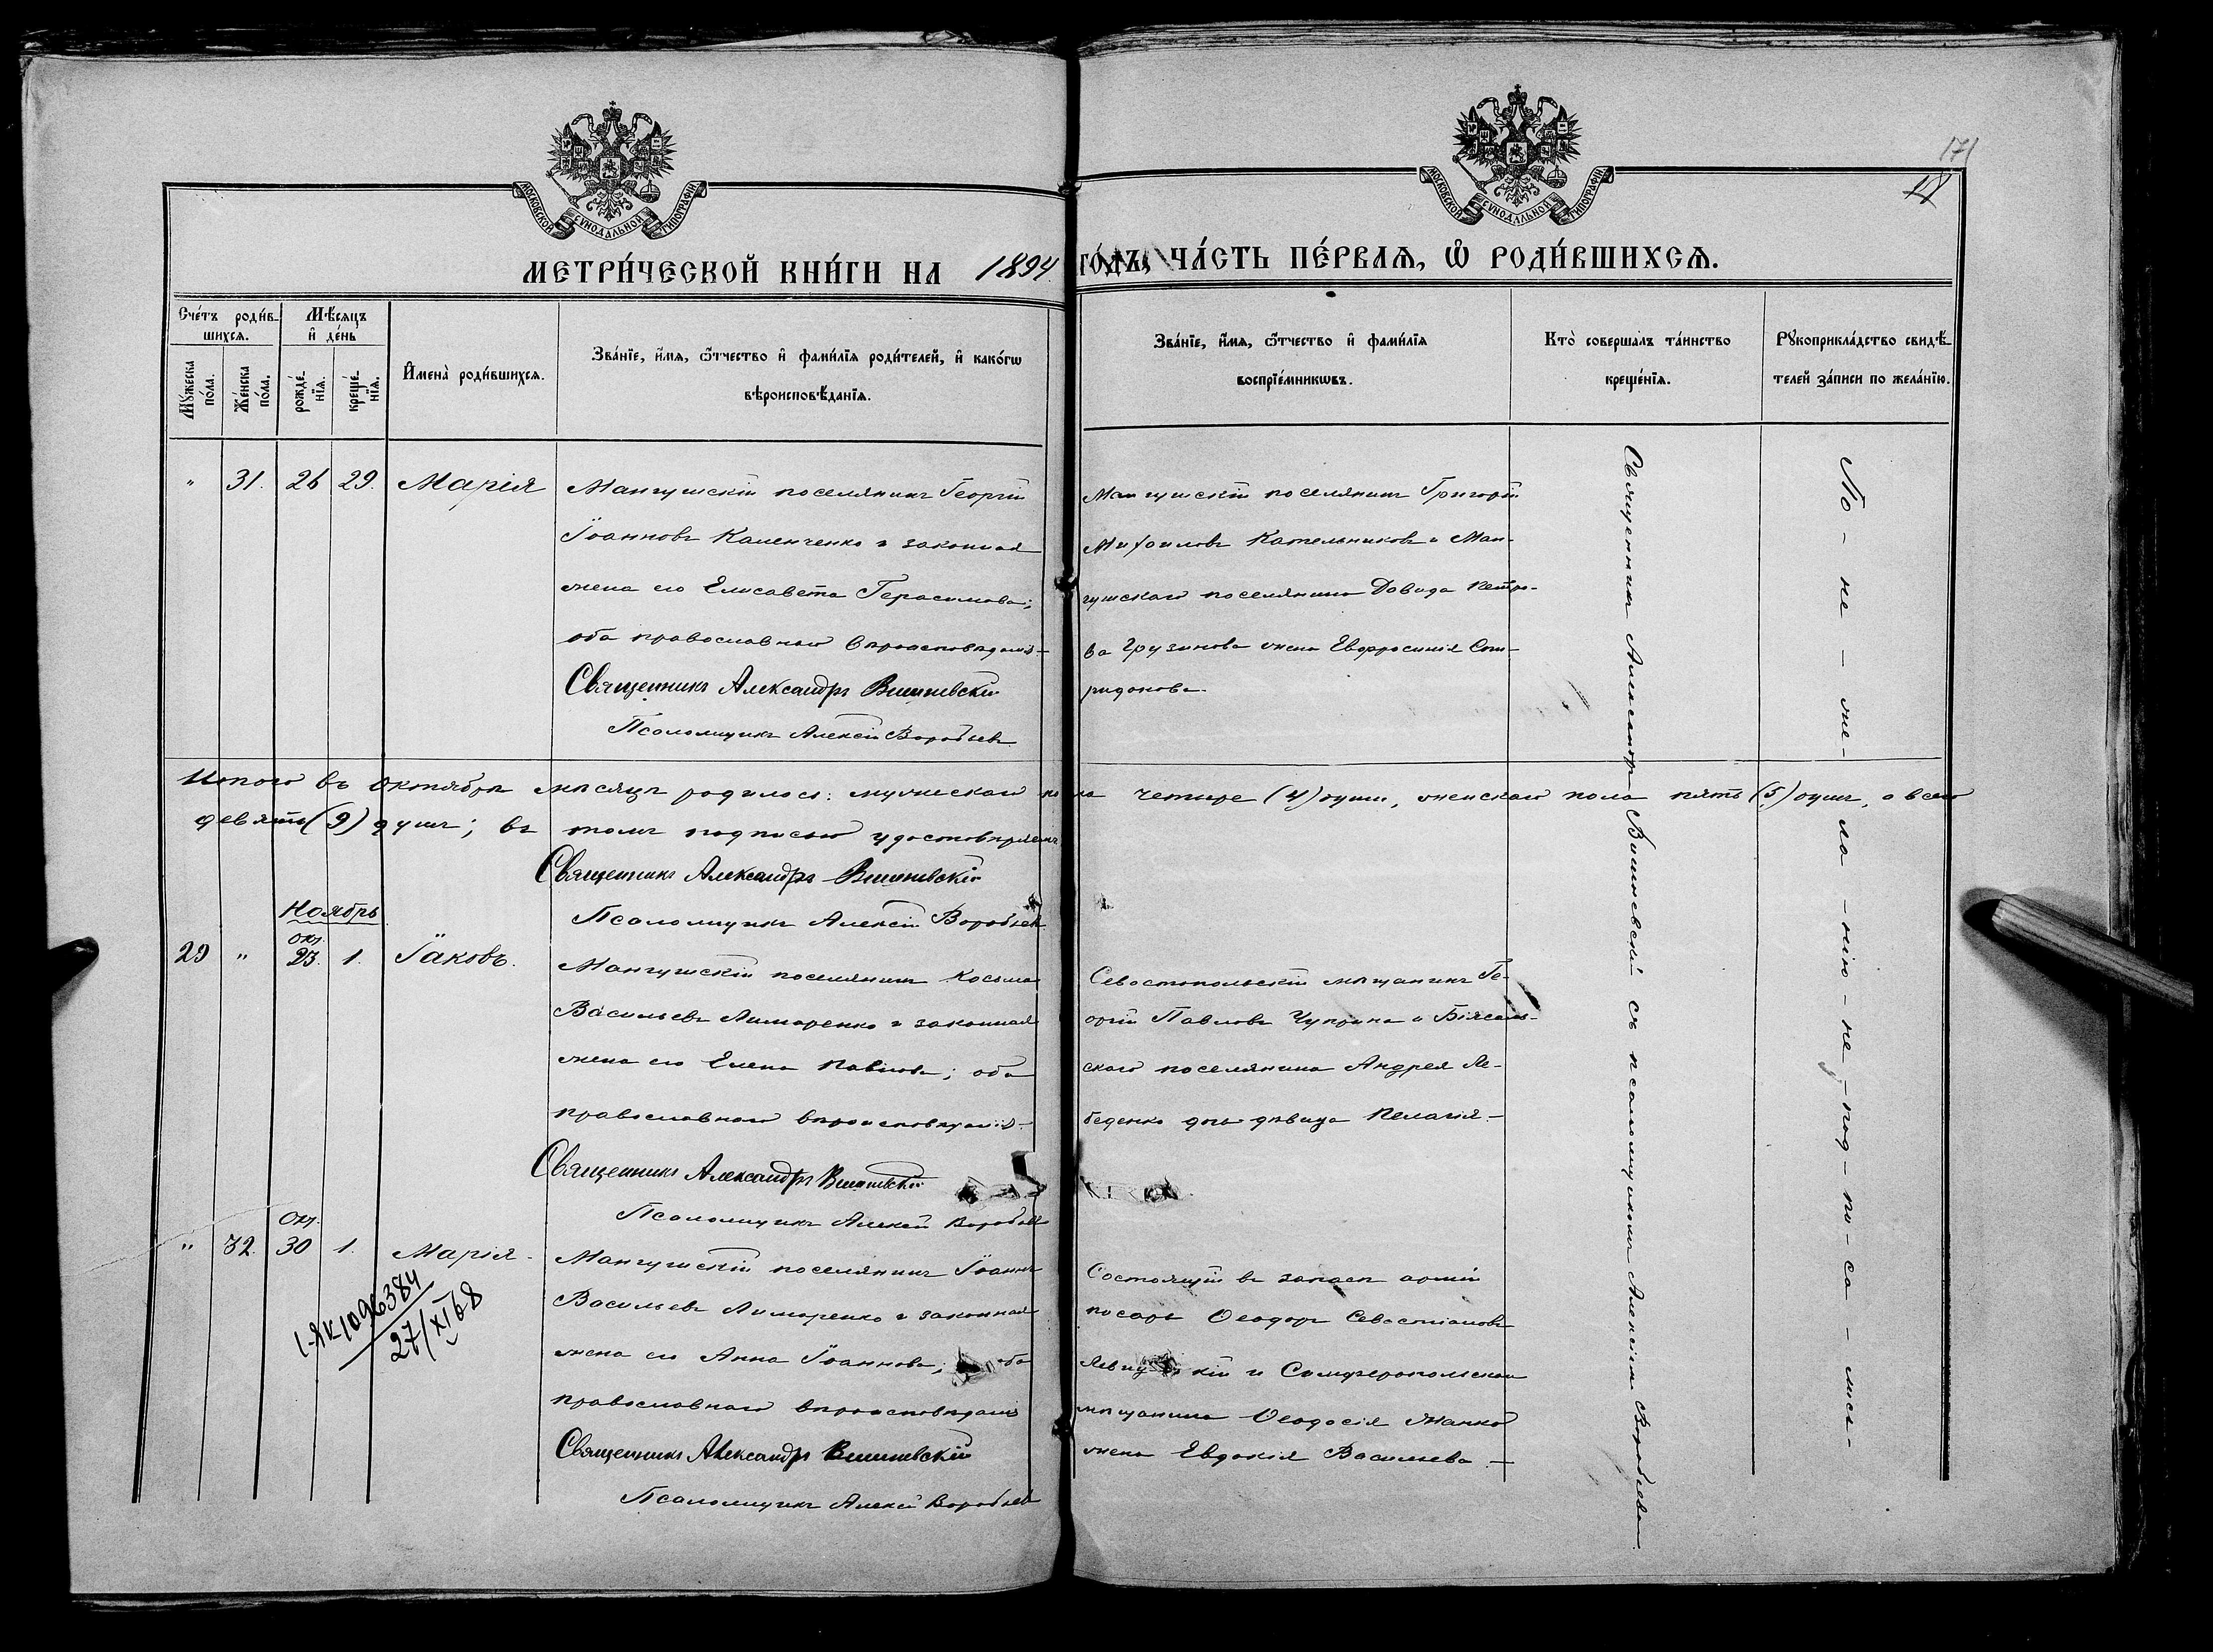 МОСКОВСКОЙ СѴНОДАЛЬНОЙ ТИПОГРАФІИ
МОСКОВСКОЙ СѴНОДАЛЬНОЙ ТИПОГРАФІИ
171
МЕТРИ́ЧЕСКОЙ КНИ́ГИ НА 1894 ГО́ДЪ, ЧА́СТЬ ПЕ́РВАѦ, Ѡ РОДИ́ВШИХСѦ.
Сче́тъ роди́в-
шихсѧ.
Мꙋжеска по́ла.
Же́нска по́ла.
Мѣ́сѧцъ
и҆ де́нь
рожде́-
нїѧ.
креще́-
нїѧ.
И҆мена̀ роди́вшихсѧ.
Зва́нїе, и҆́мѧ, ѻ҆́тчество и҆ фами́лїѧ роди́телей, и҆ како́гѡ
вѣроисповѣ́данїѧ.
Зва́нїе, и҆́мѧ, ѻ҆́тчество и҆ фами́лїѧ
воспрїе́мникѡвъ.
Кто̀ соверша́лъ та́инство
креще́нїѧ.
Рꙋкоприкла́дство свидѣ́-
телей за́писи по жела́нїю.
" 31. 26 29. Марія
Мангушскій поселянинъ Георгій
Іоанновъ Каленченко и законная
жена его Елисавета Герасимова;
оба православнаго вѣроисповѣданія
Священникъ Александръ Вишневскій
Псаломщикъ Алексій Воробьевъ
Мангушскій поселянинъ Григорій
Михаиловъ Котельниковъ и Ман-
гушскаго поселянина Давида Петро-
ва Грузинова жена Евфросинія Спи-
ридонова.
Итого въ октябрѣ мѣсяцѣ родилось: мужескаго пола четыре (4) души, женскаго пола пять (5) душъ, а всего
девять (9) душъ; въ томъ подписью удостовѣряемъ
Священникъ Александръ Вишневскій
Псаломщикъ Алексій Воробьевъ
Ноябрь
окт.
29 " 23. 1. Іаковъ.
Мангушскій поселянинъ Косьма
Васильевъ Лимаренко и законная
жена его Елена Павлова; оба
православнаго вѣроисповѣданія.
Священникъ Александръ Вишневскій
Псаломщикъ Алексій Воробьевъ
Севастопольскій мѣщанинъ Ге-
оргій Павловъ Чуприна и Біясаль-
скаго поселянина Андрея Ле-
беденко дочь дѣвица Пелагія.
Окт.
" 32. 30 1. Марія.
Мангушскій поселянинъ Іоаннъ
Васильевъ Лимаренко и законная
жена его Анна Іоаннова; оба
православнаго вѣроисповѣданія
Священникъ Александръ Вишневскій
Псаломщикъ Алексій Воробьевъ
Состоящій въ запасѣ арміи
писарь Ѳеодоръ Севастіановъ
кій и Симферопольскаго
мѣщанина Ѳеодосія
жена Евдокія Васильева.
I-ЯК 1096384
27/XI 68
Священникъ Александръ Вишневскій съ псаломщикомъ Алексіемъ Воробьевымъ
По-не-же-ла-нію-не-под-пи-са-лись-